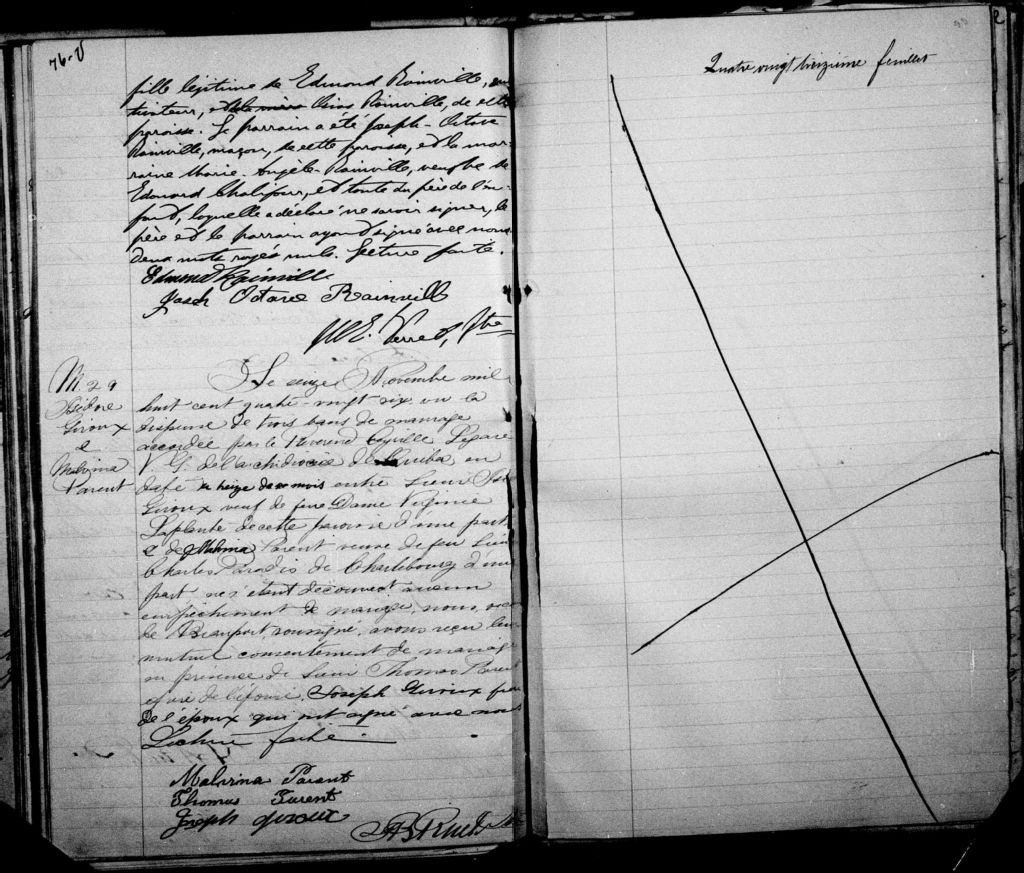 76-V
fille légitime de Edmond Rainville,
et Rainville, de cette
paroisse. Le parrain a été Joseph-Octave
Rainville, maçon, de cette paroisse, et la mar-
raine Marie-Angèle-Rainville, veuve de
Edouard Chalifour, et tante du père de l'en-
fant, laquelle a déclaré ne savoir signer, le
père et le parrain ayant signé avec nous
deux mots rayés nuls. Lecture faite.
Edmond Rainville
Joseph Octave Rainvill
Verret, Ptre
M. 29
Isidore
Giroux
&
Malvina
Parent
Le seize Novembre mil
huit cent quatre-vingt six vu la
dispense de trois bans de mariage
accordée par le Révérend Cyrille Légaré
V. G. de l'archidiocèse de en
date entre Sieur
Giroux veuf de feue Dame Virginie
Laplante de cette paroisse d'une part
& de Malvina Parent veuve de feu Sieur
Charles Paradis de Charlesbourg d'une
part ne s'étant découvert aucun
empêchement de mariage, nous,
de Beauport, soussigné, avons reçu leur
mutuel consentement de mariage
en présence de Sieur Thomas Parent
de l'épouse, Joseph Giroux
de l'époux qui ont signé avec nous
Lecture faite.
Malvina Parent
Thomas Parent
Joseph giroux
Quatre vingt treizième feuillet